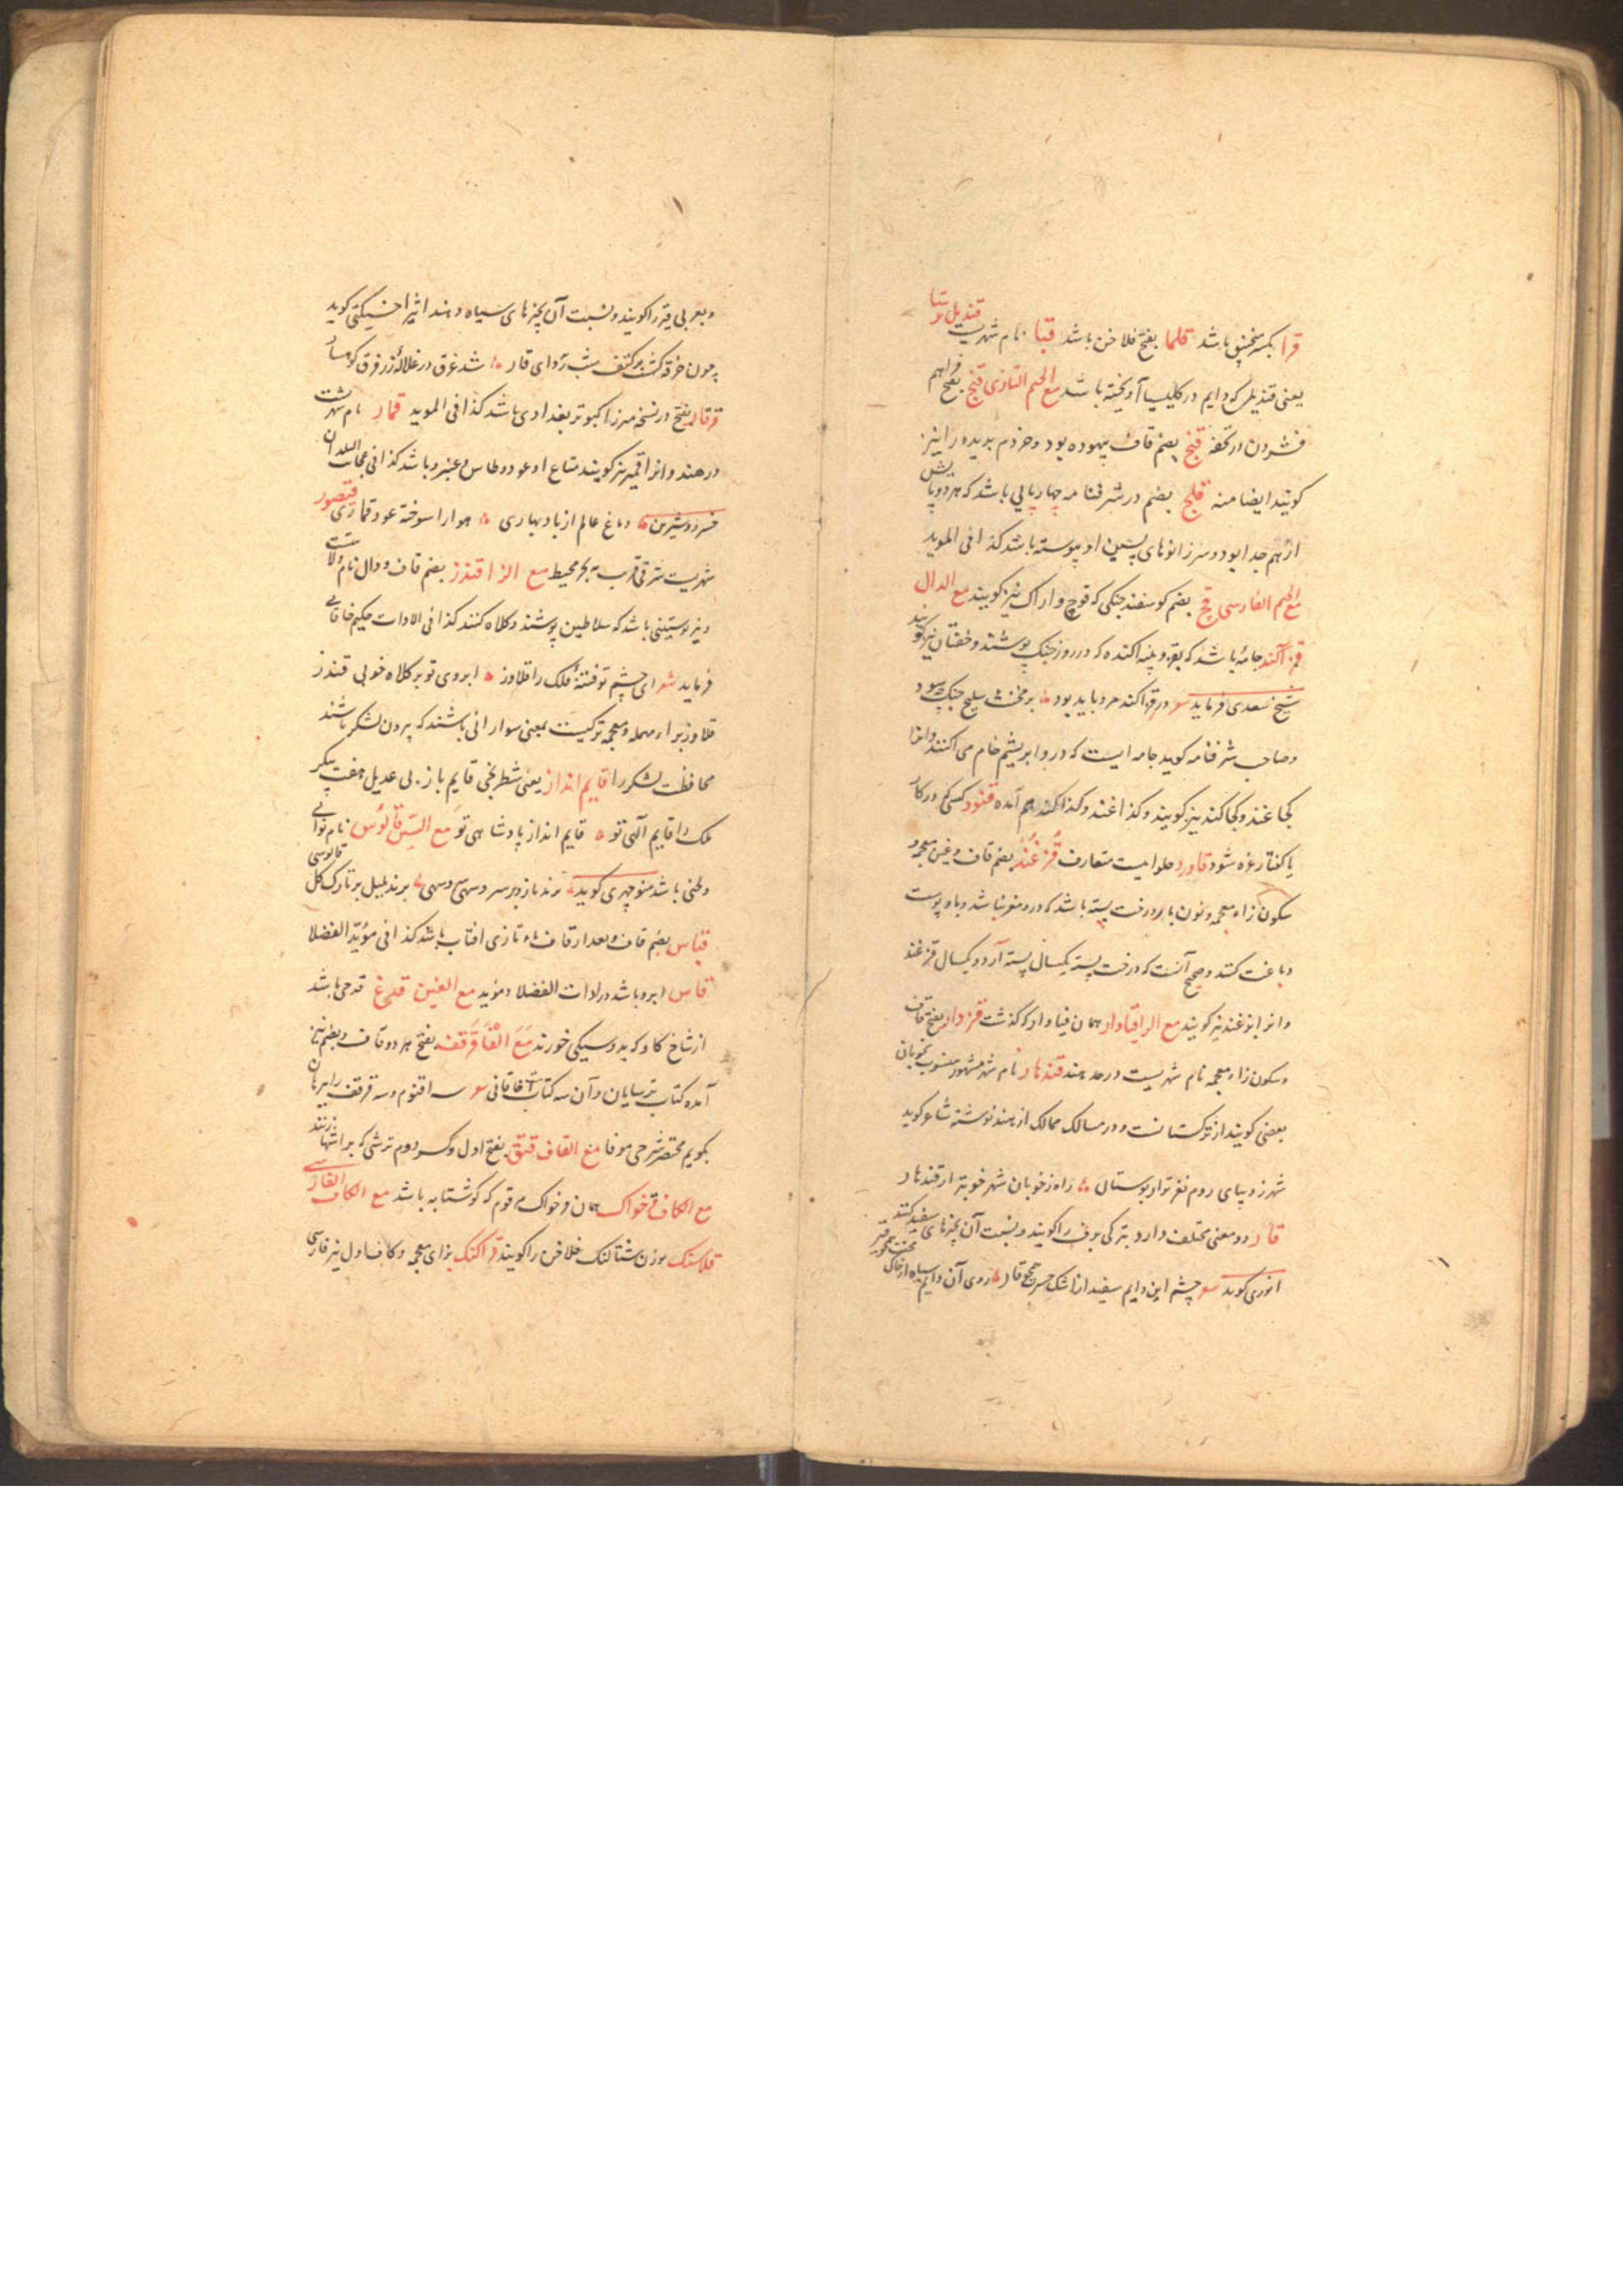 قرا بکسر منجنیق باشد قلما بفتح فلاخن باشد قبا نام شهریست قندیل ترسا
یعنی قندیل که دایم در کلیسا آویخته باشد مع الجیم التازی قنج بفتح فراهم
فشردن در تحفه قنج بضم قاف بیهوده بود و خر دم بریده را نیز
کویند ایضا منه قلج بضم در شرفنامه چهارپایی باشد که هر دو پایش
از هم جدا بود و سر زانوهای پسین او پیوسته باشد کذا فی الموید
مع الجیم الفارسی قچ بضم کوسفند جنکی که قوچ و اراک نیز کویند مع الدال
قزاکند جامهٔ باشد که بقز و پنبه اکنده که در روز جنک پوشند و خفتان نیز کویند
شیخ سعدی فرماید در قزاکند مرد باید بود بر مخنث سلیح جنک چه سود
و صاحب شرفنامه کوید جامه ایست که درو ابریشم خام می اکنند و انرا
کجاغند و کجاکند نیز کویند و کذاغند و کذاکند هم آمده قنود کسی که در کار
یا کفتار غره شود قاورد حلوا ایست متعارف قزغند بضم قاف و غین معجمه و
سکون زاء معجمه و نون بار درخت پسته باشد که درو مغز نباشد و باو پوست
دباغت کنند و صحیح آنست که درخت پسته یکسال پسته آرد و یکسال قزغند
و انرا بزغند نیز کویند مع الرا قیاوار همان فیاوار که کذشت قزدار بفتح قاف
و سکون زاء معجمه نام شهریست در حد هند قندهار نام شهر مشهور منسوب بخوبان
بعضی کویند از ترکستانست و در مسالک ممالک از هند نوشته شاعر کوید
شهر زیبای روم نغزتر از بوستان راه ز خوبان شهر خوبتر از قندهار
قار دو معنی مختلف دارد بترکی برف را کویند و بنسبت آن چیزهای سفید کنند
انوری کوید چشم این دایم سفید از اشک حسرت همچو قار روی آن دایم سیاه از خاک محنت همچو قیر
و بعربی قیر را کویند و بنسبت آن بچیزهای سیاه دهند اثیر اخسیکتی کوید
چون خرقه کشت بر کتف شب ردای قار شد غرق در غلالهٔ زر فرق کوهسار
قرقار بفتح در نسخه میرزا کبوتر بغدادی باشد کذا فی الموید قمار نام شهریست
در هند و انرا قمیر نیز کویند متاع او عود و طاوس و عنبر و باشد کذا فی عجایب البلدان
خسرو و شیرین دماغ عالم از باد بهاری هوا را سوخته عود قماری قیصور
شهریست شرقی قریب به بحر محیط مع الزا قندز بضم قاف و دال نام ولایتیست
و نیز پوستینی باشد که سلاطین پوشند و کلاه کنند کذا فی الادات حکیم خاقانی
فرماید شعر ای چشم تو فتنهٔ فلک را قلاوز ابروی تو بر کلاه خوبی قندز
قلاوز براء مهمله و معجمه ترکیست بمعنی سوارانی باشند که بیرون لشکر باشند
محافظت لشکر را قایم انداز یعنی شطرنجی قایم باز بی عدیل هفت پیکر
ملک را قایم الهی تو قایم انداز پادشاهی تو مع السین قالوس نام نوایی
و لحنی باشد منوچهری کوید برند ناز بر سر و سهی سهی برند بلبل بر تارک کل قالوسی
قناس بضم قاف و بعد از قاف تاء تازی افتاب باشد کذا فی موید الفضلا
قاس ابرو باشد در ادات الفضلا و موید مع الغین قدغ قدحی باشد
از شاخ کاو که بدو سیکی خورند مع الفا قرقف بفتح هر دو قاف و بضم نیز
آمده کتاب ترسایان و آن سه کتاب است خاقانی سه اقنوم و سه قرقف را ببرهان
بکویم مختصر شرحی موفا مع القاف قنق بفتح اول و کسر دوم ترشی که بر انتها زنند
مع الکاف قرخواک همان فرخواک مرقوم که کوشتابه باشد مع الکاف الفارسی
قلاسنک بوزن شتالنک فلاخن را کویند قزاکنک بزای معجمه و کاف اول نیز فارسی